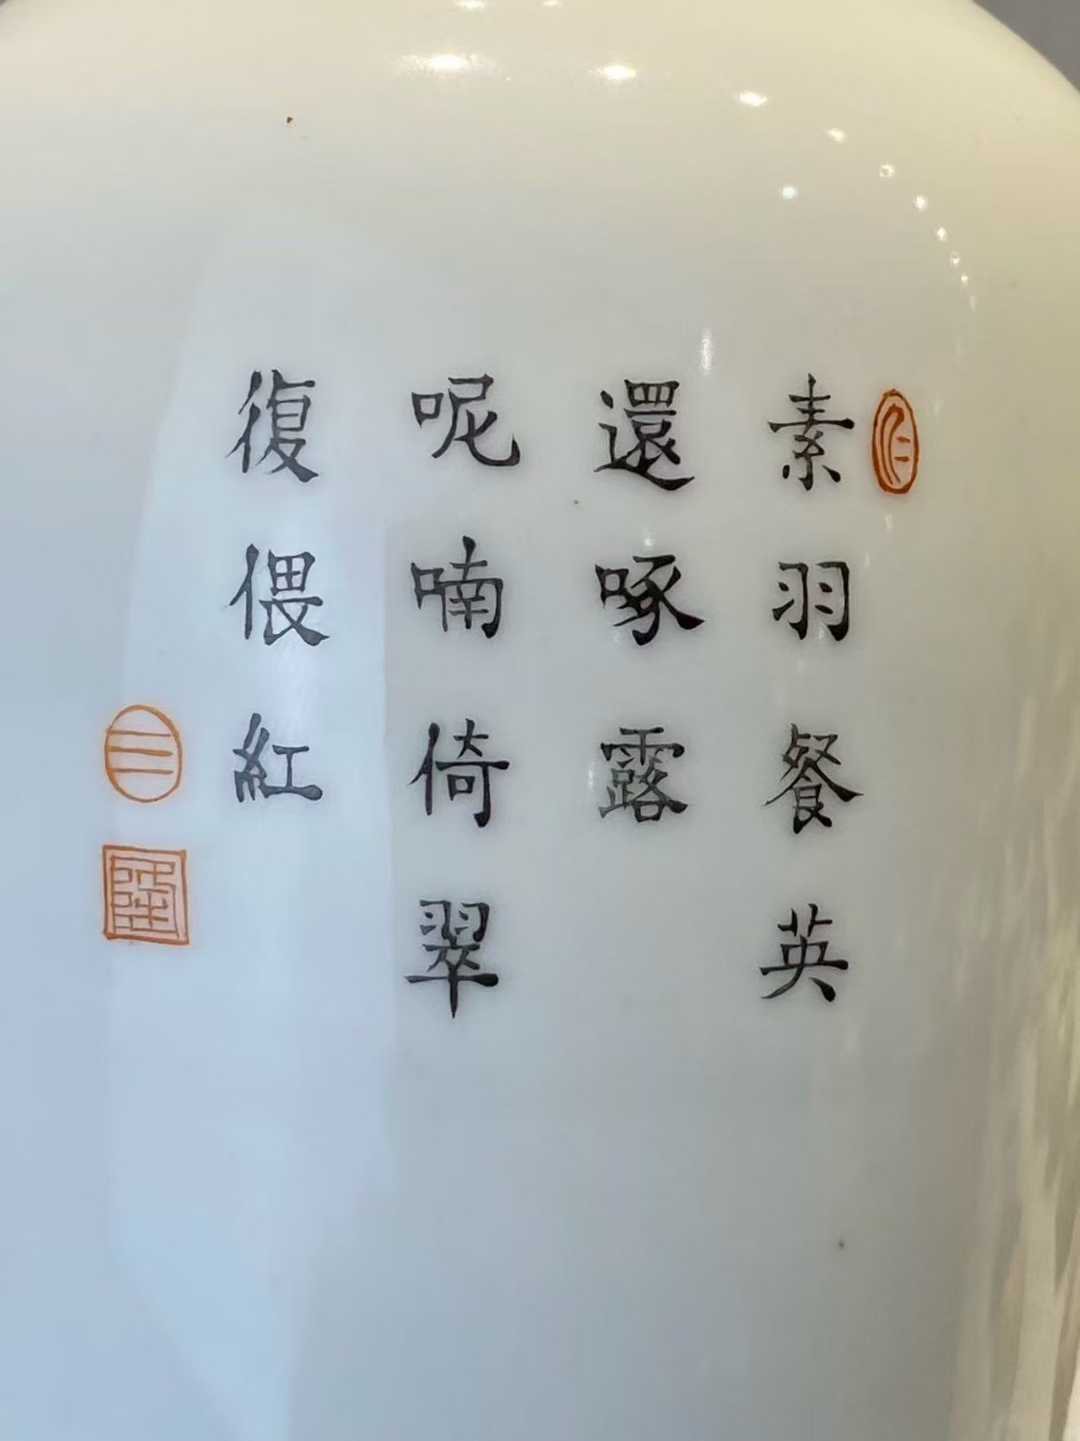 素羽餐英
還啄露
呢喃倚翠
復偎紅